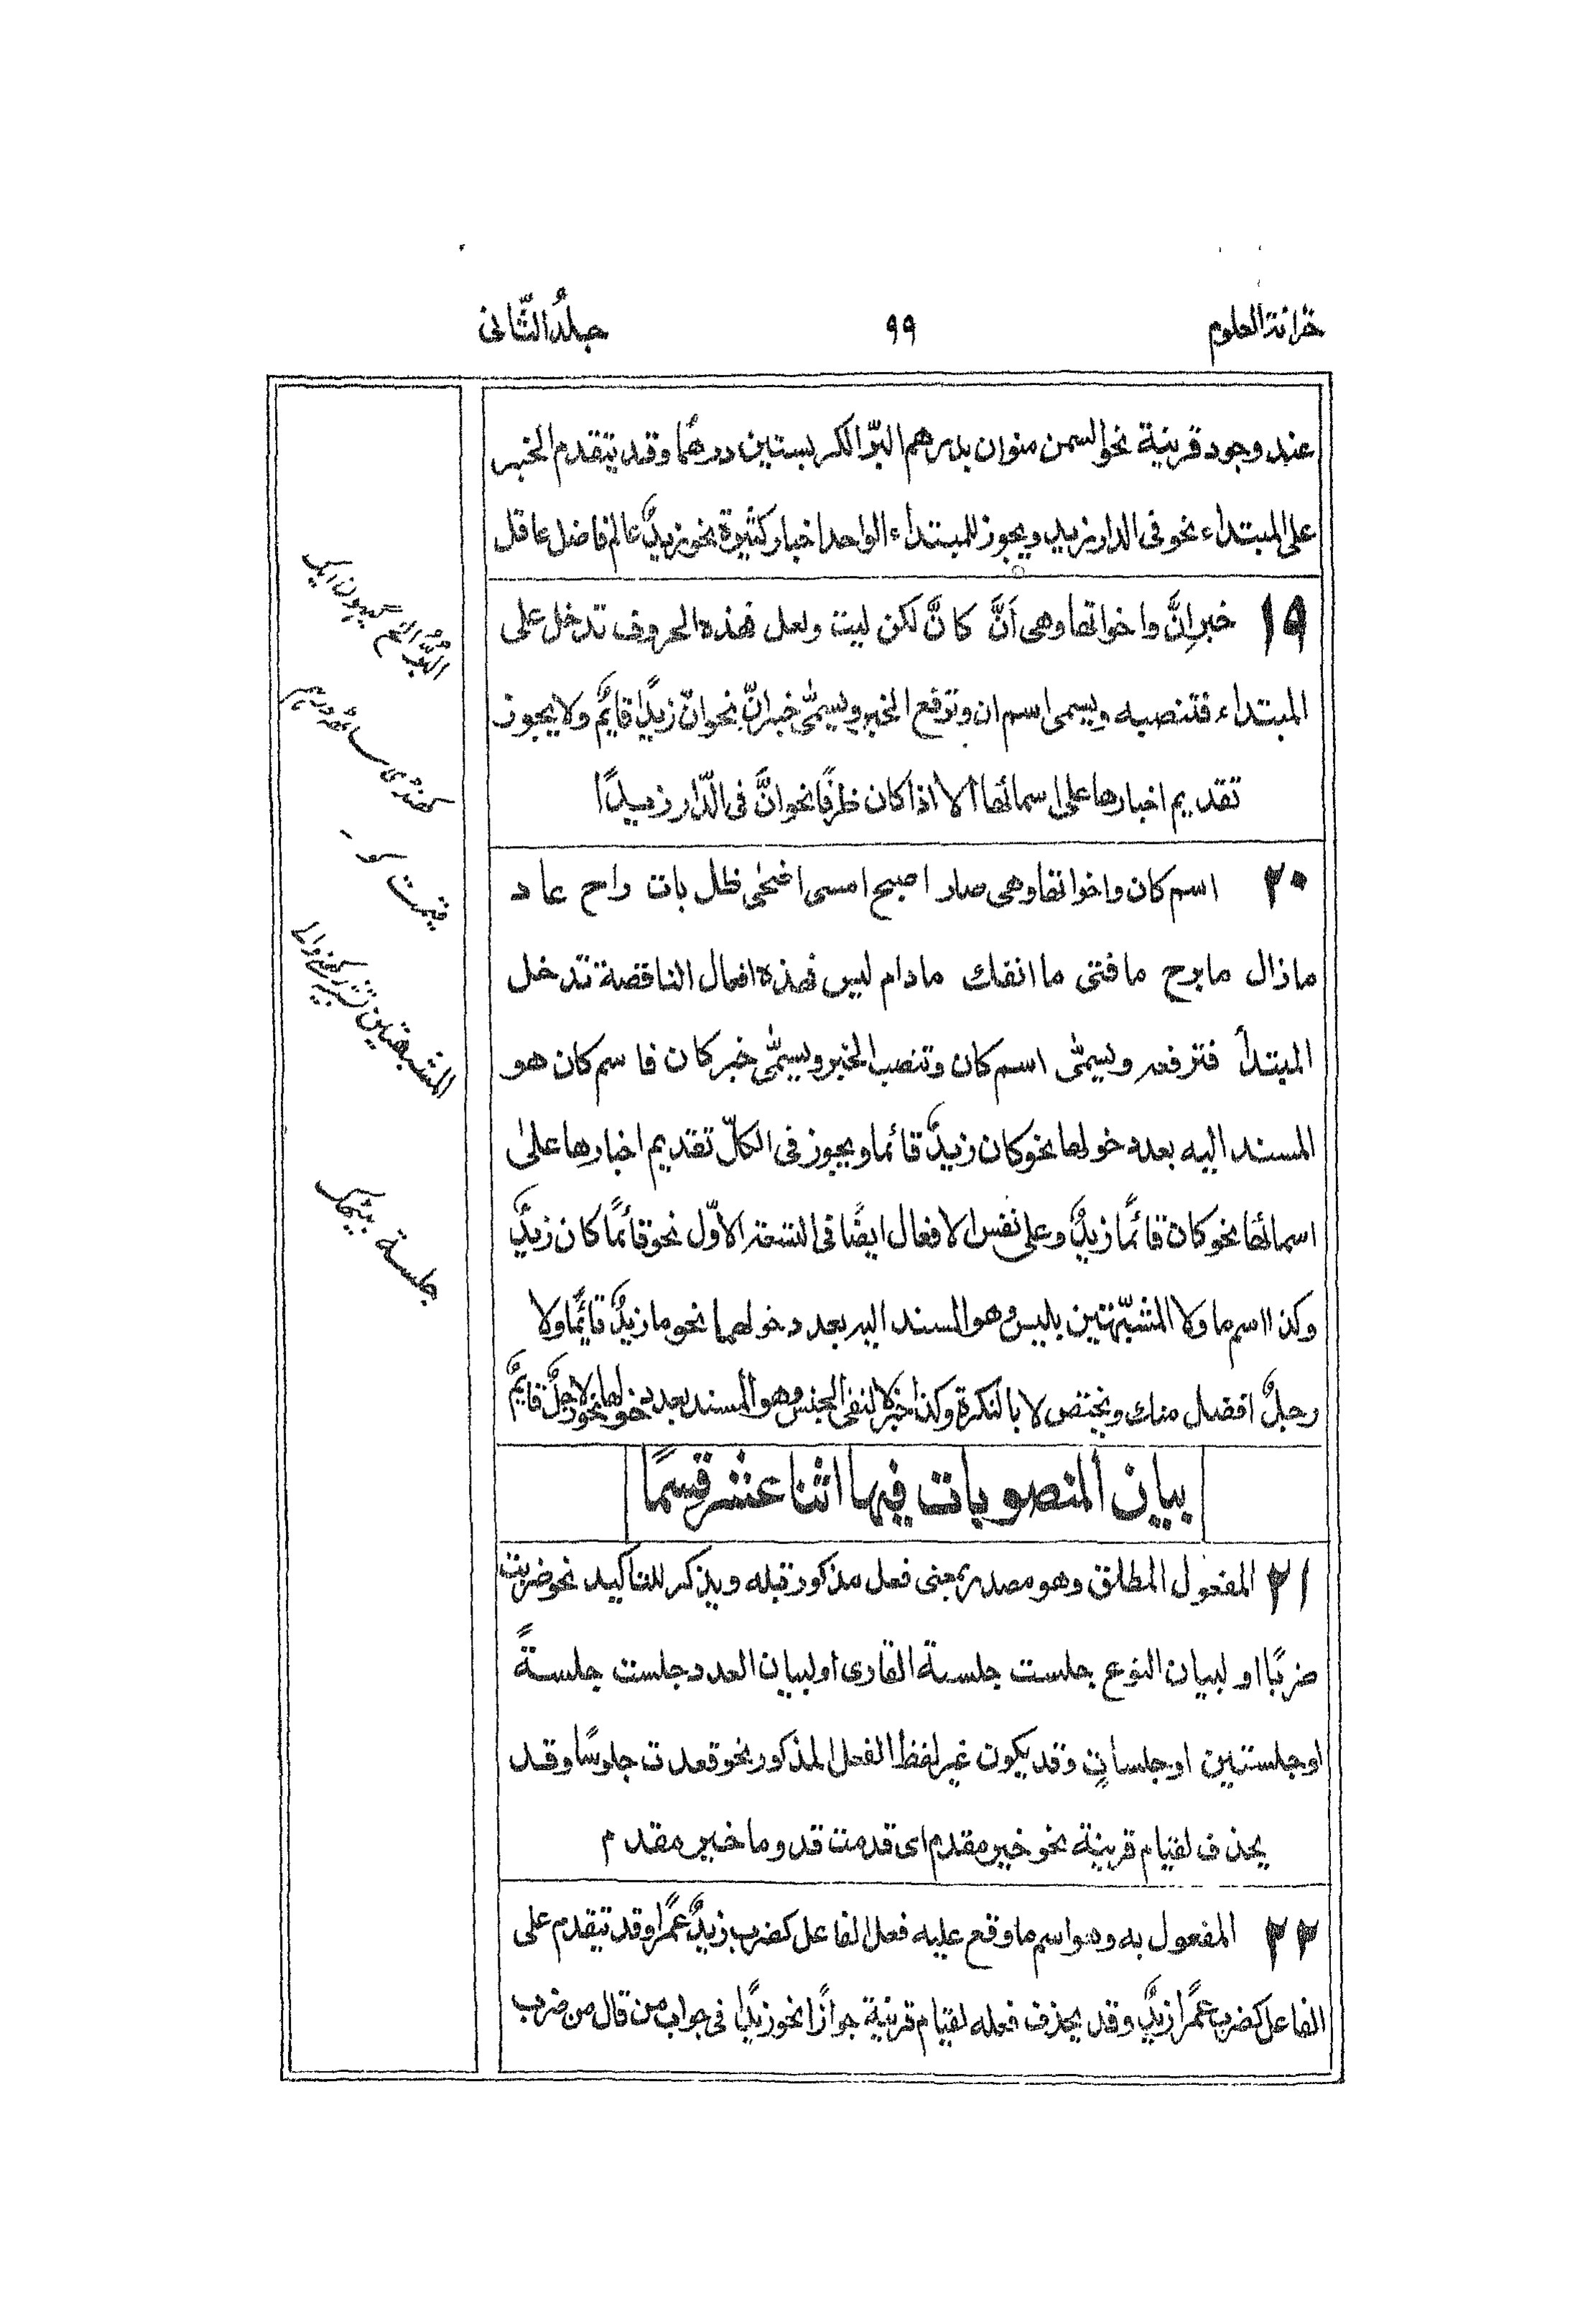 خزانة العلوم ۹۹ جلدُ الثّانی
عند وجود قرينة نحو السمن منوان بدرهم البرّ الكر بستين درهمًا وقد يتقدم الخبر
على المبتداء نحو فی الدار زيد ويجوز للمبتداء الواحد اخبار كثيرة نحو زيدٌ عالم فاضل عاقل
١٩ خبر اِنَّ واخواتها وهی اَنَّ كانَّ لكن ليت ولعل فهذه الحروف تدخل على
المبتداء فتنصبه ويسمی اسم ان وترفع الخبر ويسمّٰى خبر انّ نحو انّ زيدًا قائمٌ ولا يجوز
تقديم اخبارها على اسمائها الا اذا كان ظرفًا نحو انَّ فی الدّار زيدًا
٢٠ اسم كان واخواتها وهی صار اصبح امسى اضحٰى ظل بات راح عاد
مازال مابرح مافتئ ماانفك مادام ليس فهذه افعال الناقصة تدخل
المبتدأ فترفعه ويسمّٰى اسم كان وتنصب الخبر ويسمّٰى خبر كان فاسم كان هو
المسند اليه بعد دخولها نحو كان زيدٌ قائما ويجوز فی الكلّ تقديم اخبارها علىٰ
اسمائها نحو كان قائمًا زيدٌ وعلى نفس الافعال ايضًا فی التسعة الاوّل نحو قائمًا كان زيدٌ
وكذا اسم ما ولا المشبّهتين بليس وهو المسند اليه بعد دخولهما نحو ما زيدٌ قائمًا ولا
رجلٌ افضل منك ويختص لا بالنكرة وكذا خبر لا لنفی الجنس وهو المسند بعد دخولها نحو لا رجلٌ قائمٌ
بيان المنصوبات فيها اثنا عشر قسمًا
٢١ المفعول المطلق وهو مصدر بمعنی فعل مذكور قبله ويذكر للتاكيد نحو ضربت
ضربًا او لبيان النوع جلست جلسة القاری او لبيان العدد جلست جلسةً
او جلستين او جلساتٍ وقد يكون غير لفظ الفعل المذكور نحو قعدت جلوسًا وقد
يحذف لقيام قرينة نحو خير مقدم ای قدمت قدوما خير مقدم
٢٢ المفعول به وهو اسم ما وقع عليه فعل الفاعل كضرب زيدٌ عمرًا وقد يتقدم على
الفاعل كضرب عمرًا زيدٌ وقد يحذف فعله لقيام قرينة جوازًا نحو زيدًا فی جواب من قال من ضرب
البُرّ الخ گیہون ایک
کھنڈی ساٹھ درہم
قیمت کو۔
المشبهتين تشبیہ رکھنے والے
جلسة بیٹھک